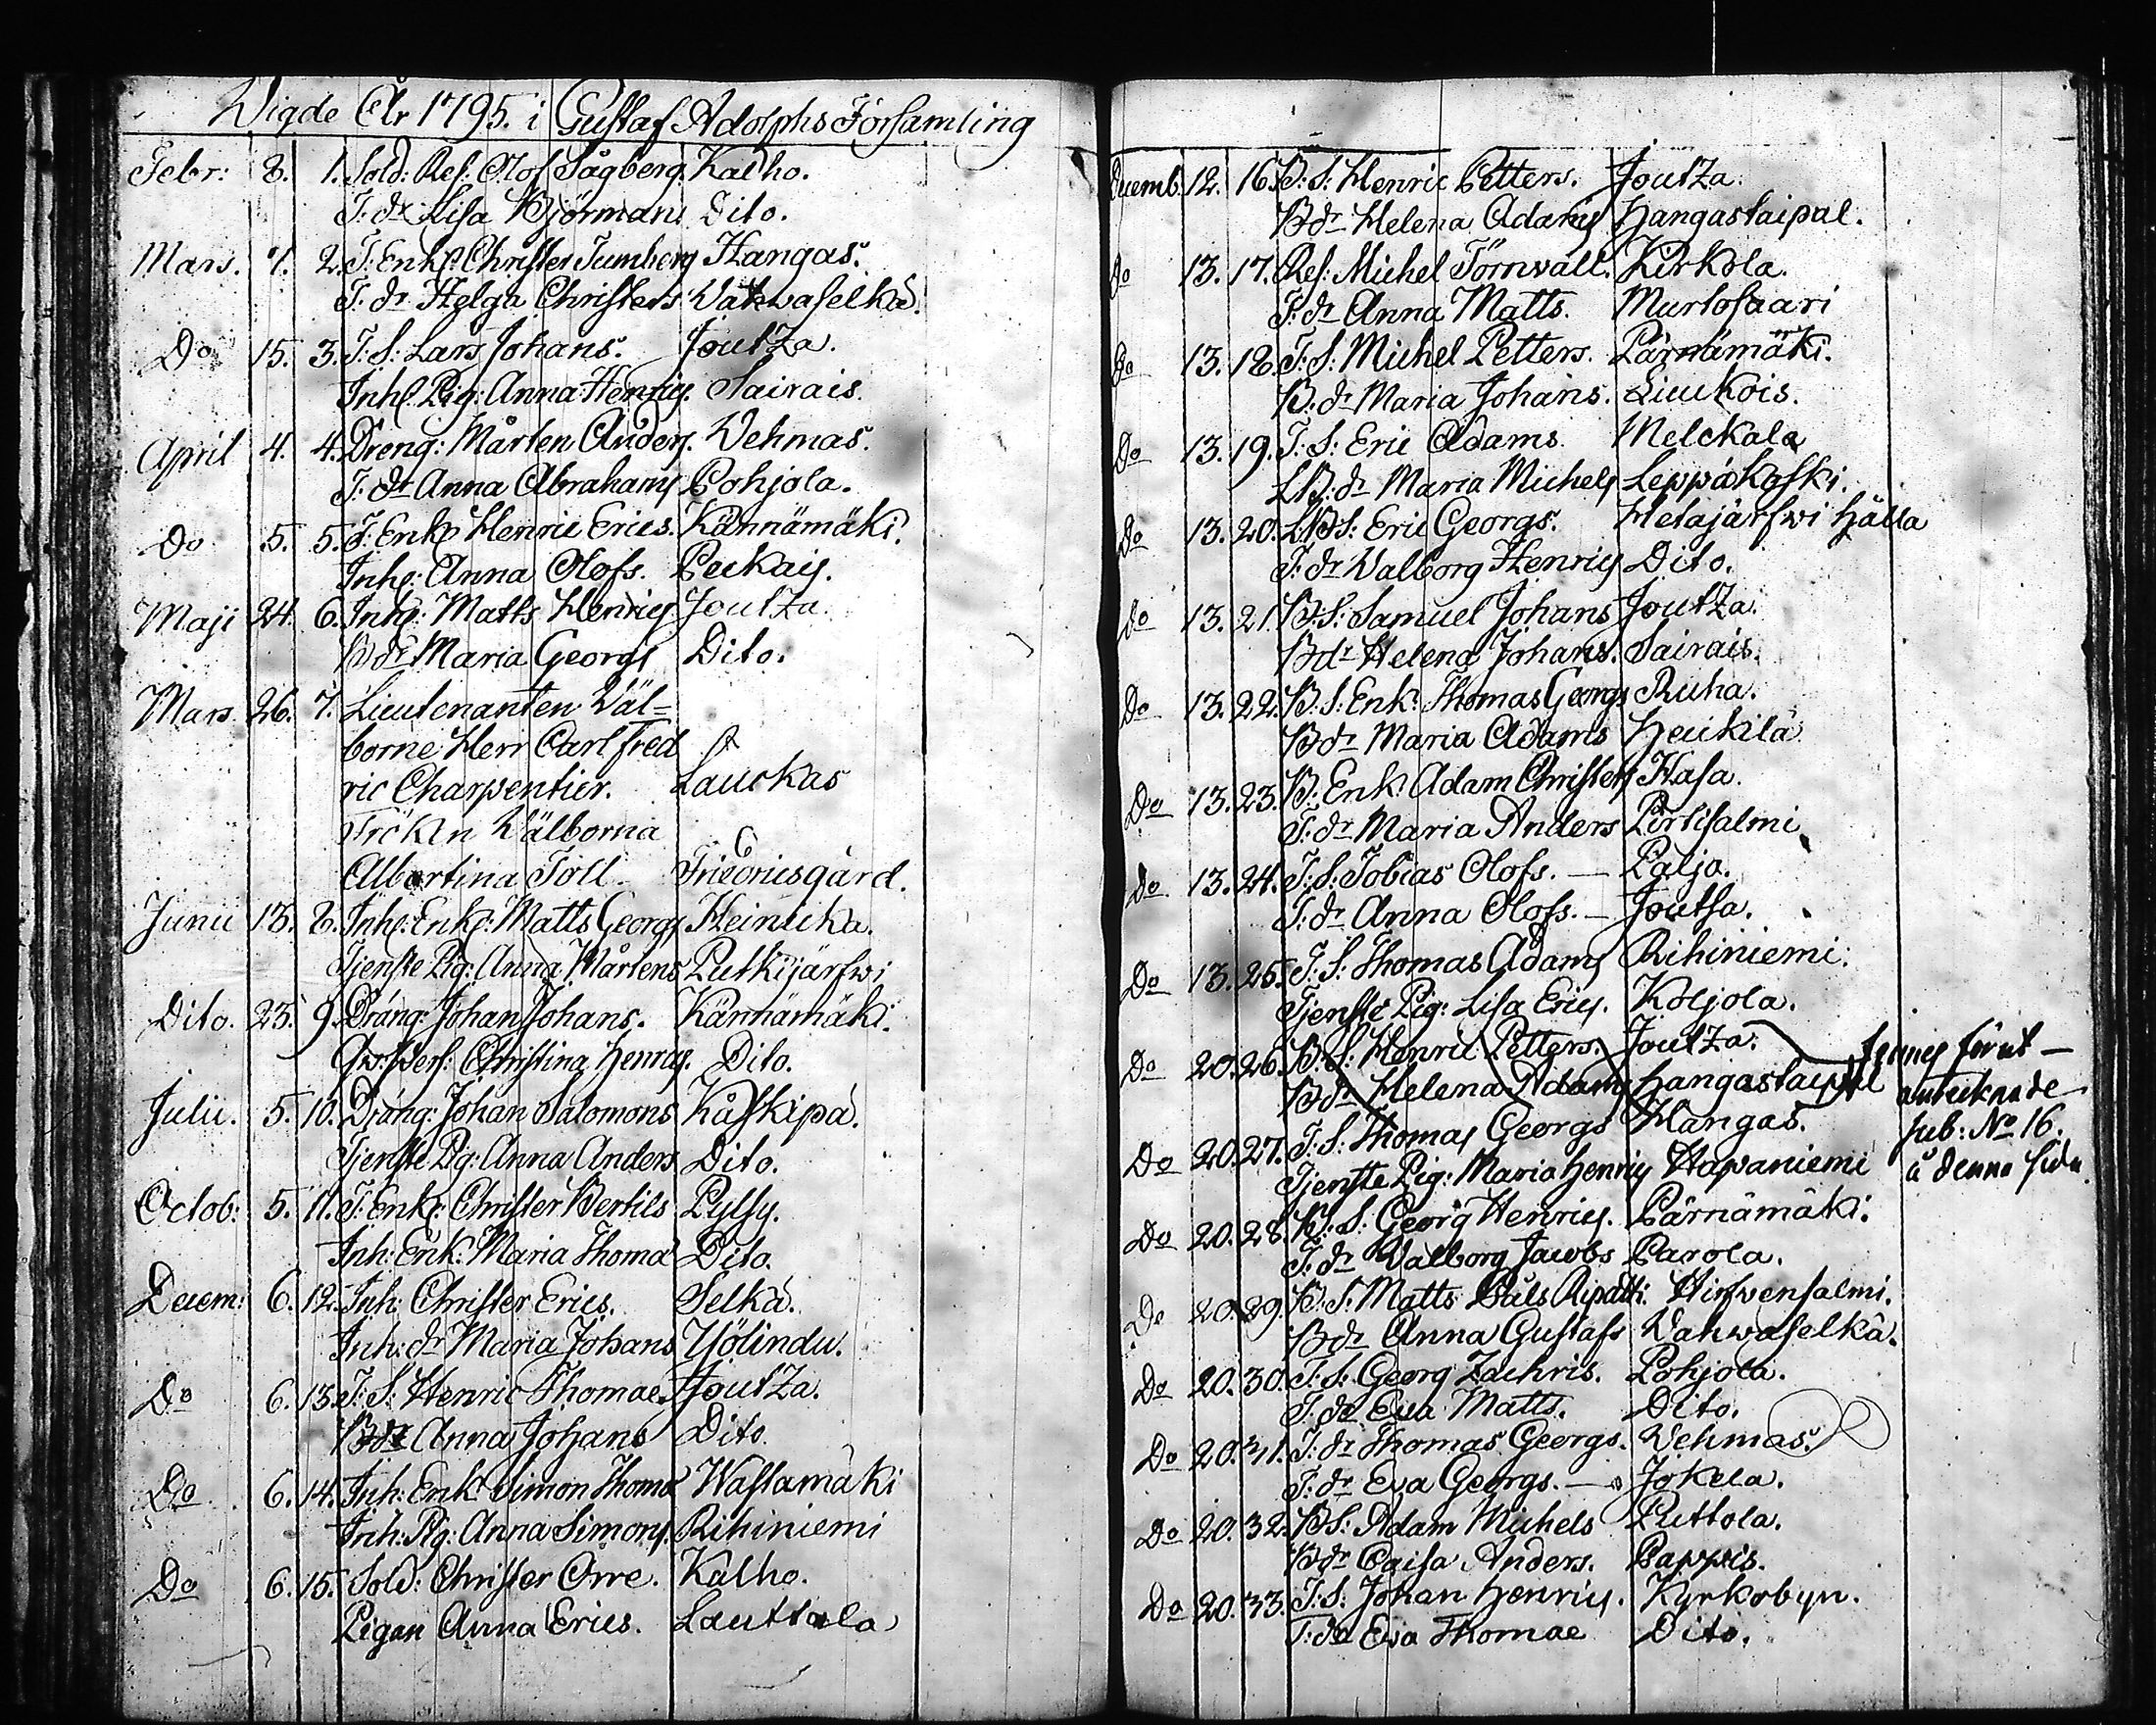 Wigde År 1795. i Gustaf Adolphs Församling
Febr: 8. 1. Sold: Ref: Olof Sågberg. Kalho.
T: dr: Lisa Björmans Dito.
Mars. 7. 2. T: Enkl: Christer Tumberg Hangas.
T: dr Helga Christers Wakwaselkä.
Do 15. 3. T: S: Lars Johans. Joutza.
Inh: Pig: Anna Henrics. Sairais.
April 4. 4. Dreng: Mårten Anders. Wehmas.
T: dr Anna Abrahams Pohjola.
Do 5. 5. T: Enkl Henric Erics. Kännämäki.
Inh: Anna Olofs. Peckais.
Maji 24. 6. Inh: Matts Henrics Joutza
B dr Maria Georgs Dito.
Mars 26. 7. Lieutenanten Wäl=
borne Herr Carl Fred
ric Charpentier. Lauckas
Fröken Wälborna
Albertina Toll Friedricsgård.
Junii 13. 8. Inh: Enkl: Matts Georgs Heinicka.
Tjenste Pig: Anna Mårtens Putkijärfwi
Dito. 23. 9. Dräng: Johan Johans. Kännämäki.
Christina Henrics. Dito.
Julii. 5. 10. Dräng: Johan Salomons Kålkipä.
Tjenste Pig: Anna Anders Dito.
Octob: 5. 11. T: Enkl: Christer Bertils Pylsy.
Inh: Enk: Maria Thomæ Dito.
Decem: 6. 12. Inh: Christer Erics. Selkä.
Inh: dr Maria Johans Ylölindu.
Do 6. 13. T: S: Henric Thomae. Joutza.
B dr Anna Johans Dito.
Do 6. 14. Inh: Enkl Simon Thomæ Wastamäki
Inh: Pig: Anna Simons. Rihiniemi
Do 6. 15. Sold: Christer Orre. Kalho.
Pigan Anna Erics. Lauttala
Decemb. 12. 16. B: S: Henric Petters. Joutza.
B dr Helena Adams Hangastaipal.
Do 13. 17. Ref: Michel Törnwall. Kirkola.
T: dr Anna Matts. Murtosaari
Do 13. 18. T: S: Michel Petters. Pärnämäki.
B: dr Maria Johans. Liuckois.
Do 13. 19. T: S: Eric Adams Melckala
LB: dr Maria Michels Leppäkoski.
Do 13. 20. LBS: Eric Georgs. Hetajärfwi Hälla
T: dr Walborg Henrics Dito.
Do 13. 21. B: S: Samuel Johans Joutza.
B dr Helena Johans. Sairais.
Do 13. 22. B. S: Enk: Thomas Georgs Ruha.
B dr Maria Adams Heickilä
Do 13. 23. B: Enk: Adam Christers Hasa.
T: dr Maria Anders Pertisalmi
Do 13. 24. T: S: Tobias Olofs. — Paljo.
T: dr Anna Olofs. — Joutsa.
Do 13. 25. T: S: Thomas Adams Rihiniemi.
Tjenste Pig: Lisa Erics. Koljola.
Do 20. 26. B: S: Henric Petters. Joutza. finnes förut —
B dr Helena Adams Hangastaipal antecknade
Do 20. 27. T: S: Thomas Georgs Hangas. sub: No 16.
Tjenste Pig: Maria Henrics Hapaniemi å denna sida
Do 20. 28. B: S: Georg Henrics. Pärnämäki.
T: dr Walborg Jacobs Parola.
Do 20. 29. B: S: Matts Påls Ripatti Hirfwensalmi.
B dr Anna Gustafs Wahwaselkä.
Do 20. 30. T: S: Georg Zachris. Pohjola.
T: dr Eva Matts. Dito.
Do 20. 31. T: dr Thomas Georgs. Wehmas.
T: dr Eva Georgs. — Jokela.
Do 20. 32. B S: Adam Michels Puttola.
B dr Caisa Anders. Pappis.
Do 20. 33. T: S: Johan Henrics. Kyrkobyn.
T: dr Eva Thomae Dito.